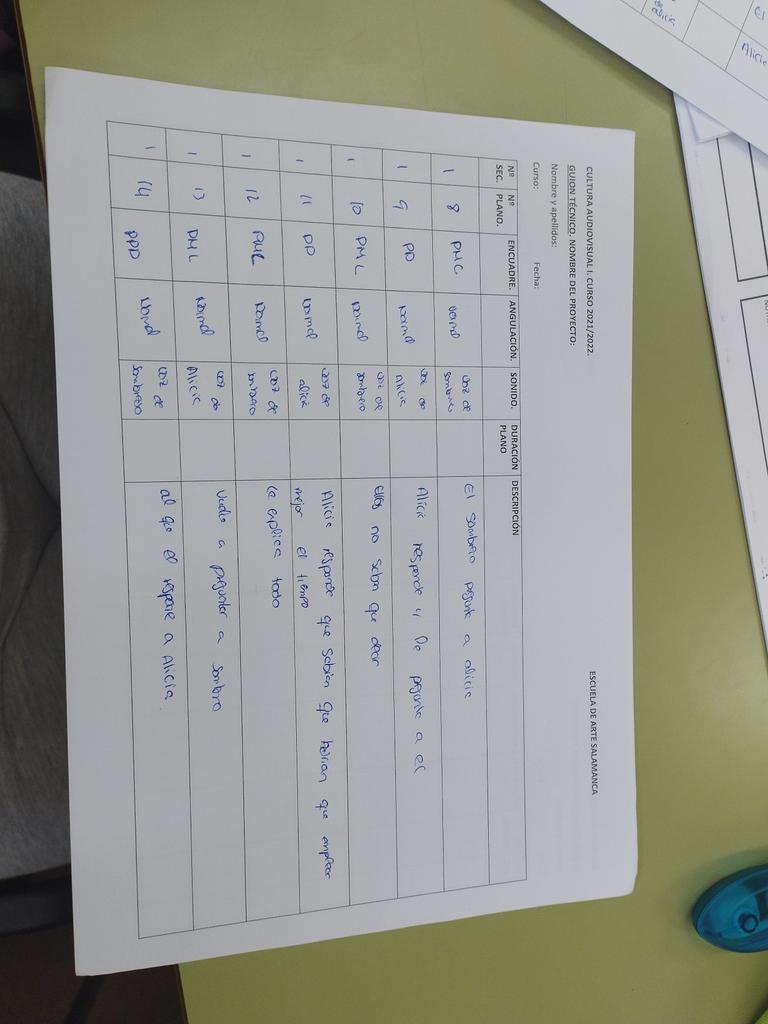 CULTURA AUDIOVISUAL I. CURSO 2021/2022. ESCUELA DE ARTE SALAMANCA
GUION TÉCNICO. NOMBRE DEL PROYECTO:
Nombre y apellidos:
Curso: Fecha:
Nº SEC. Nº PLANO. ENCUADRE. ANGULACIÓN. SONIDO. DURACIÓN PLANO DESCRIPCIÓN
1 8 PMC Normal voz de sombrero El sombrero pregunta a alicia
1 9 PD Normal voz de Alicia Alicia responde y le pregunta a el
1 10 PML Normal voz de sombrero Ellos no saben que decir
1 11 PD Normal voz de alicia Alicia responde que sabían que habrían que emplear
mejor el tiempo
1 12 PML Normal voz de sombrero Le explica todo
1 13 PML Normal voz de Alicia Vuelve a preguntar a sombrero
1 14 PPD Normal voz de sombrero al que el responde a Alicia.
de alicia
El
Alicia